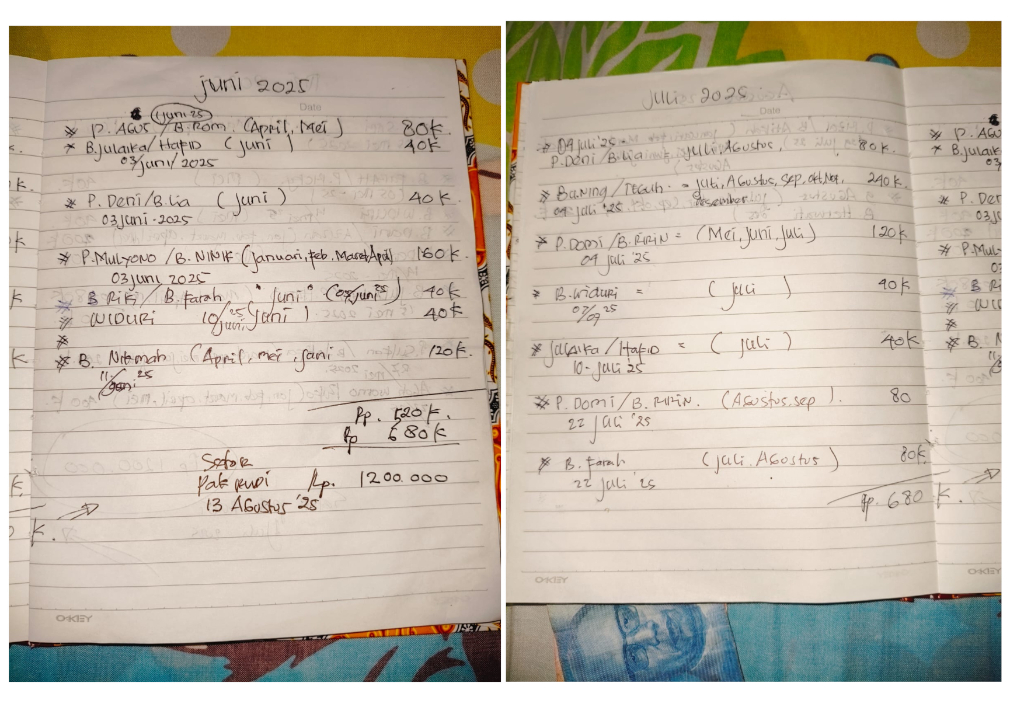 juni 2025
Date
1 juni 25
* P. AGUS / B. Rom. (April, Mei) 80k.
* B. Julaika / HAFID (juni) 40k.
03/juni/2025
* P. Deni / B. Lia (juni) 40k
03 juni - 2025
* P. MULYONO / B. NINIK (januari, feb, Maret, April) 160k.
03 juni 2025
B RIFI / B. Farah "juni" (03/juni 25) 40k
WIDURI 10/juni 25 (juni) 40k
*
* B. Nikmah (April, mei, juni 120k.
11/juni 25
Rp. 520k.
Rp 680k
Setor
Pak Rp. 1200.000
13 Agustus '25
k.
OKEY
JULI 2025
Date
* 04 juli '25
P. Doni / B. Lia = juli, Agustus, 80k.
* Ba.NING / TEGUH = juli, Agustus, Sep, okt, Nov, 240k
04 juli '25 Desember
* P. Domi / B. RIRIN = (Mei, juni, juli) 120k
04 juli '25
* B. Widuri = (juli) 40k
07/09 25
* JULAIKA / HAFID = (juli) 40k
10 - juli 25
* P. Domi / B. RIRIN. (Agustus, sep). 80
22 juli '25
* B. Farah (juli, Agustus) 80k
22 juli 25
Rp. 680 k.
OKEY